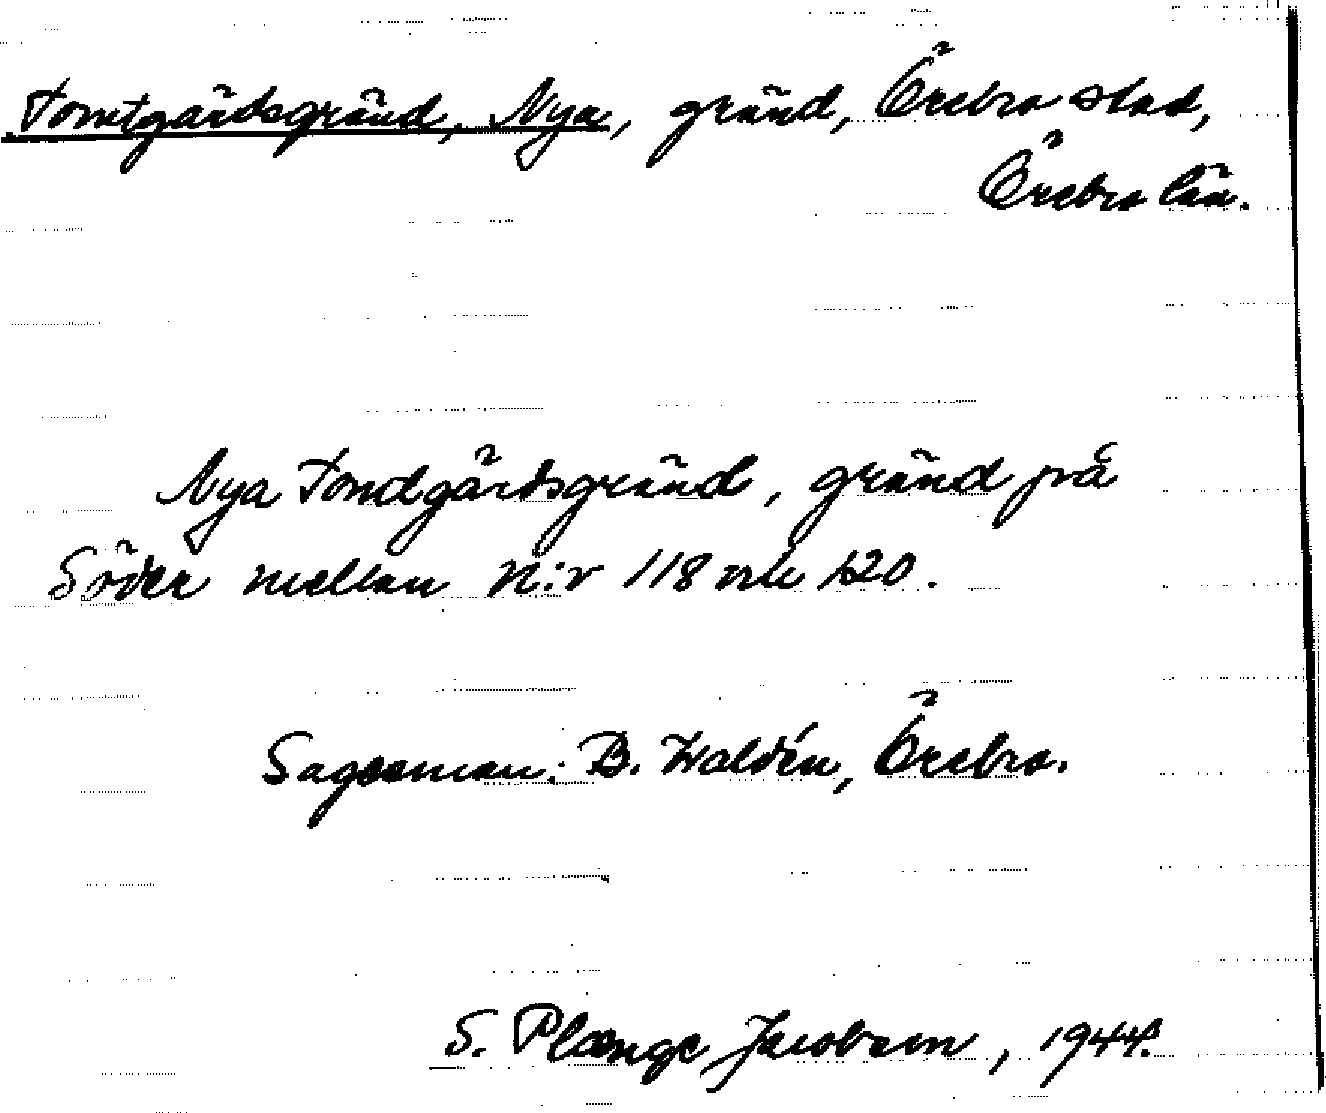 Tomtgårdsgränd, Nya, gränd, Örebro stad,
Örebro län.
Nya Tomdgårdsgränd, gränd på
Söder mellan N:r 118 och 120.
Sagesman: B. Waldén, Örebro.
S. Plænge Jacobson, 1944.